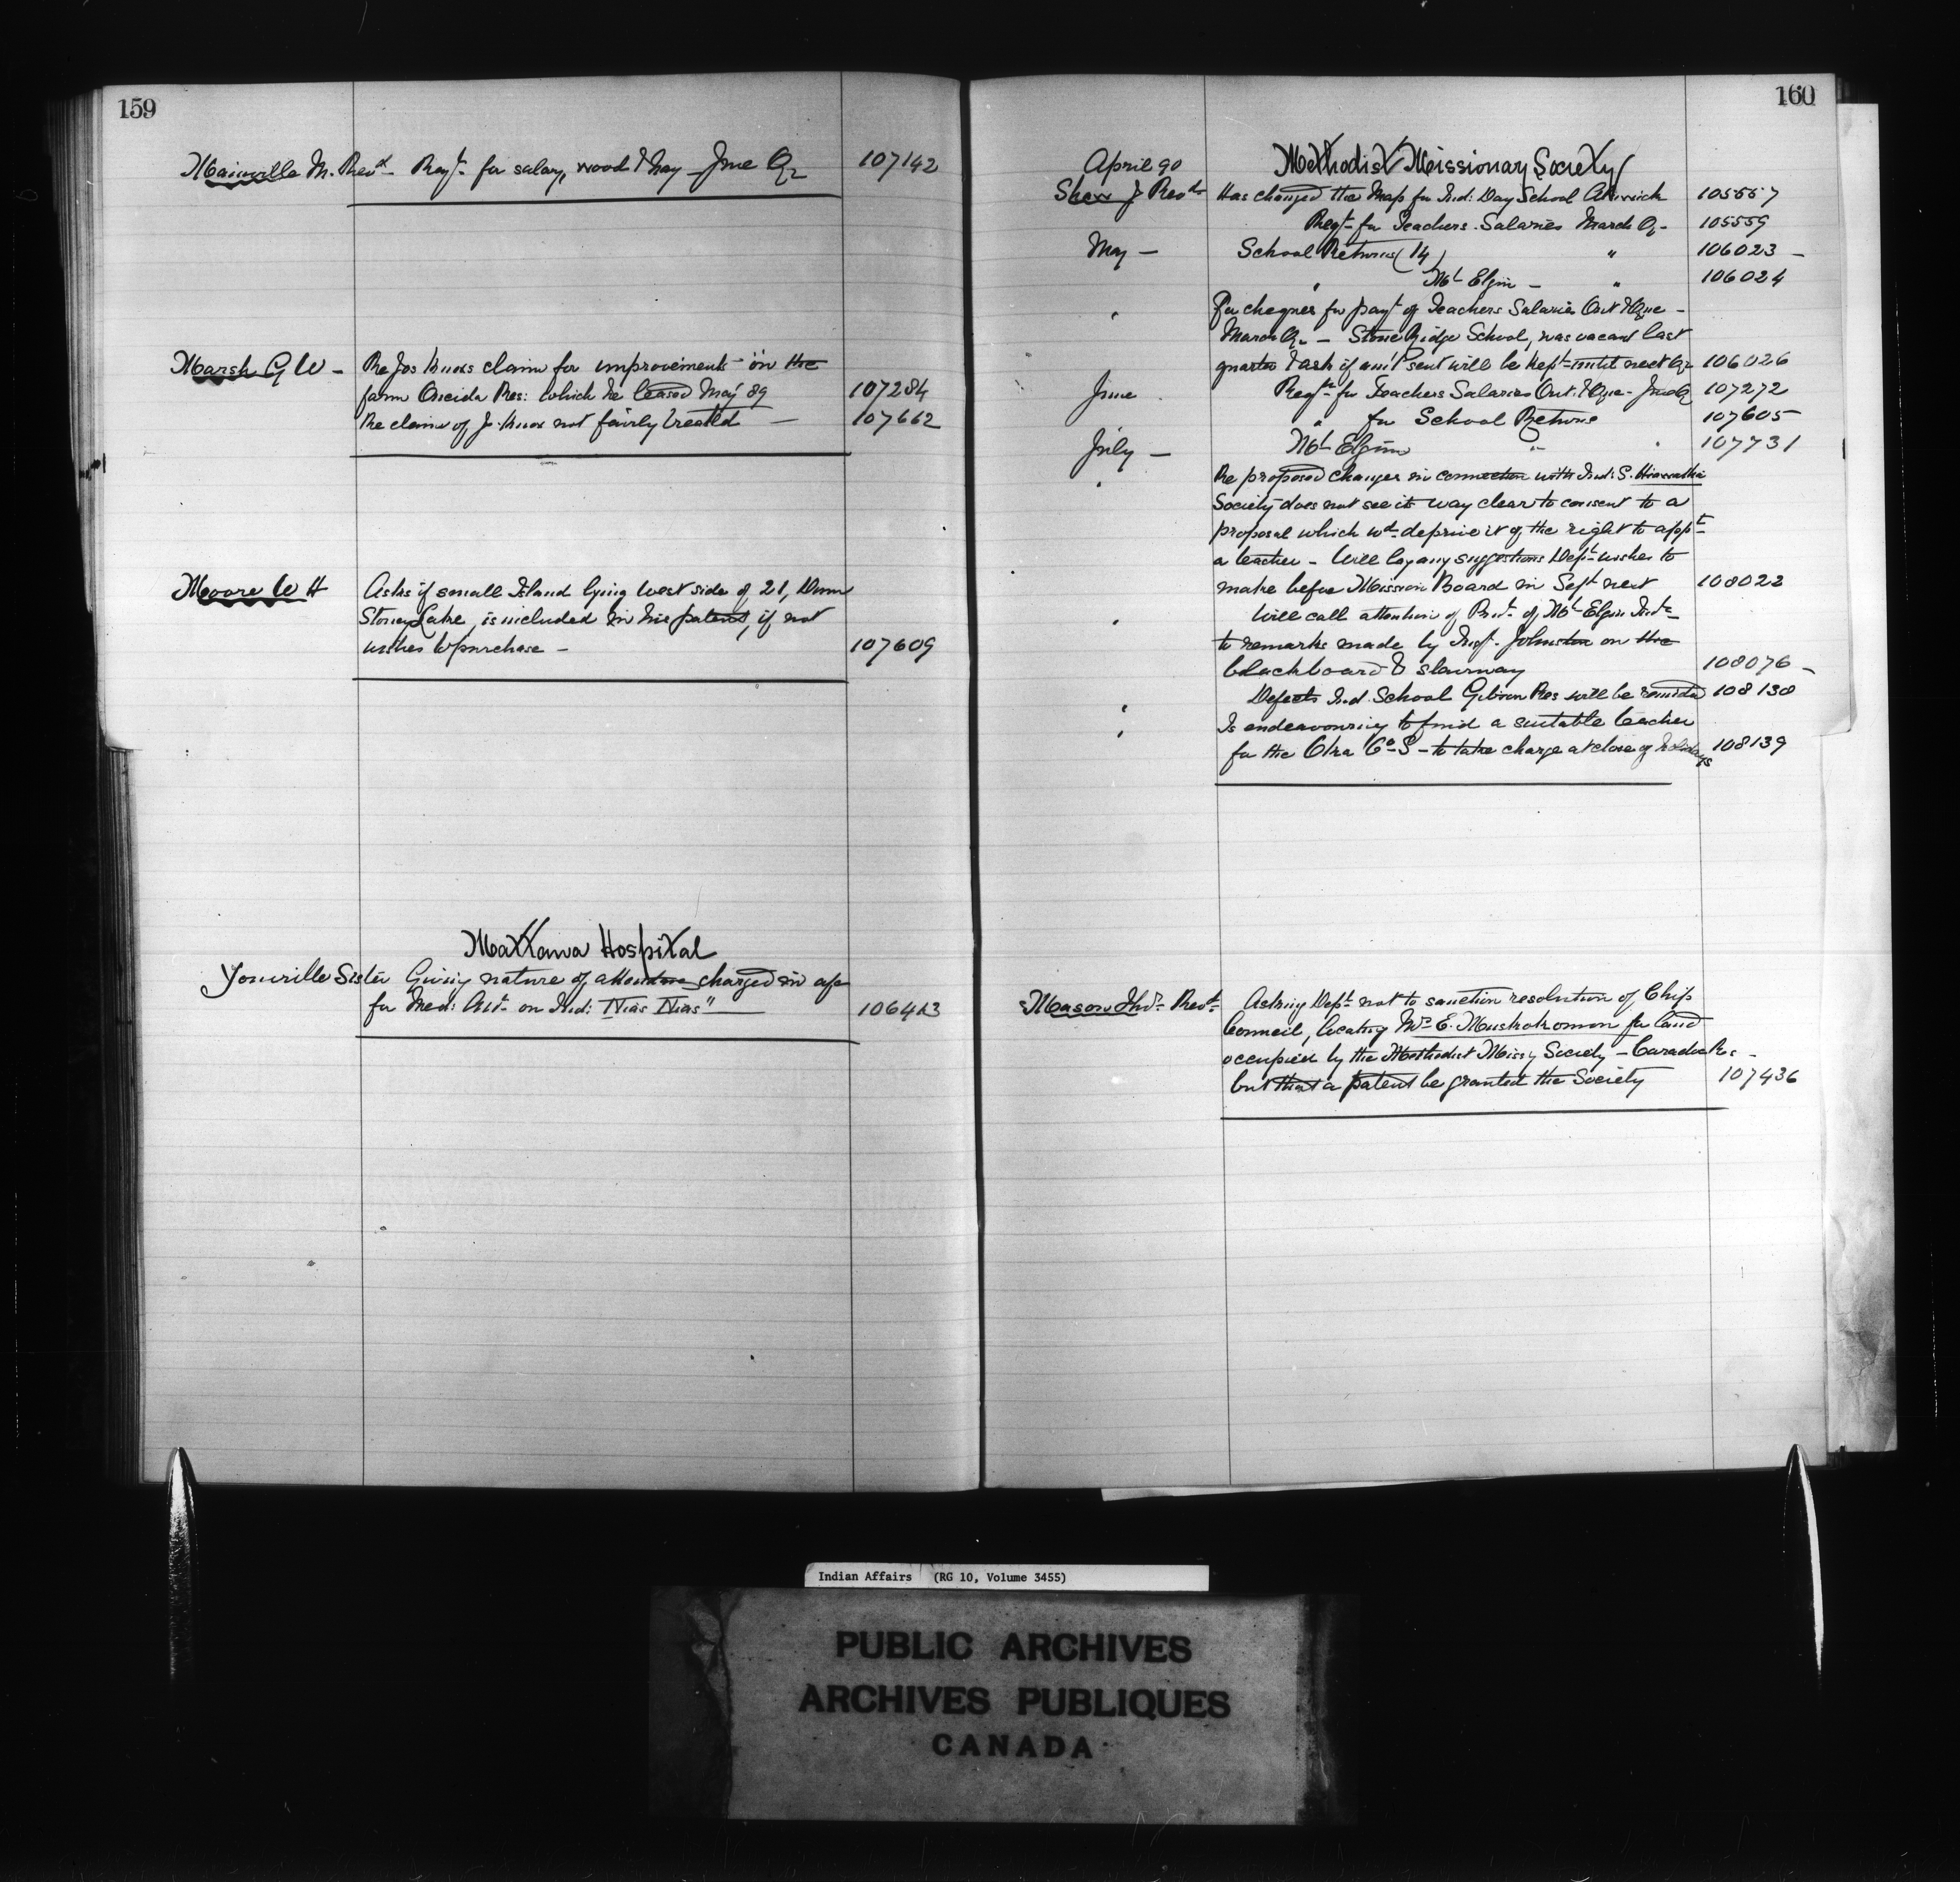 159
Mainville M. Revd Reqt for salary, wood & hay June Qr 107142
Marsh G W - Re Jos Knoxs claim for improvements on the
farm Oneida Res: which he leased May 89 107284
Re claim of J. Knox not fairly treated - 107662
Moore W H Asks if small Island lying west side of 21, Dum
Stoney Lake, is included in his patent, if not
wishes to purchase - 107609
Mattawa Hospital
Youville Sister Giving nature of attendce charged in a/c
for Med: Att. on Ind: "Nias Nias" 106413
160
April 90 Methodist Missionary Society
Shaw J Revd Has changed the Map for Ind: Day School Alnwick 105557
Reqt for Teachers Salaries March Qr 105559
May - School Returns (14) " 106023 -
" Mt Elgin - " 106024
" For cheques for payt of Teachers Salaries Ont & Que -
March Qr - Stone Ridge School, was vacant last
quarter & ask if amt sent will be kept until next Qr 106026
June Reqt for Teachers Salaries Ont. & Que - June Q 107272
" for School Returns 107605
July - Mt Elgin " " 107731
" Re proposed changes in connection with Ind: S. Hiawatha
Society does not see its way clear to consent to a
proposal which wd deprive it of the right to appt
a teacher - Will lay any suggestions Dept wishes to
make before Mission Board in Sept next 108022
" Will call attention of Prinl of Mt Elgin Inste
to remarks made by Insp. Johnston on the
blackboard & stairway 108076 -
" Defects Ind. School Gibson Res will be remedied 108130
" Is endeavouring to find a suitable teacher
for the Oka Co S - to take charge at close of holidays 108139
Mason Thos Revd Asking Dept not to sanction resolution of Chip
Council, locating Mrs E. Muskokomon for land
occupied by the Methodist Missy Society - Caradoc Res -
but that a patent be granted the Society 107436
Indian Affairs (RG 10, Volume 3455)
PUBLIC ARCHIVES
ARCHIVES PUBLIQUES
CANADA